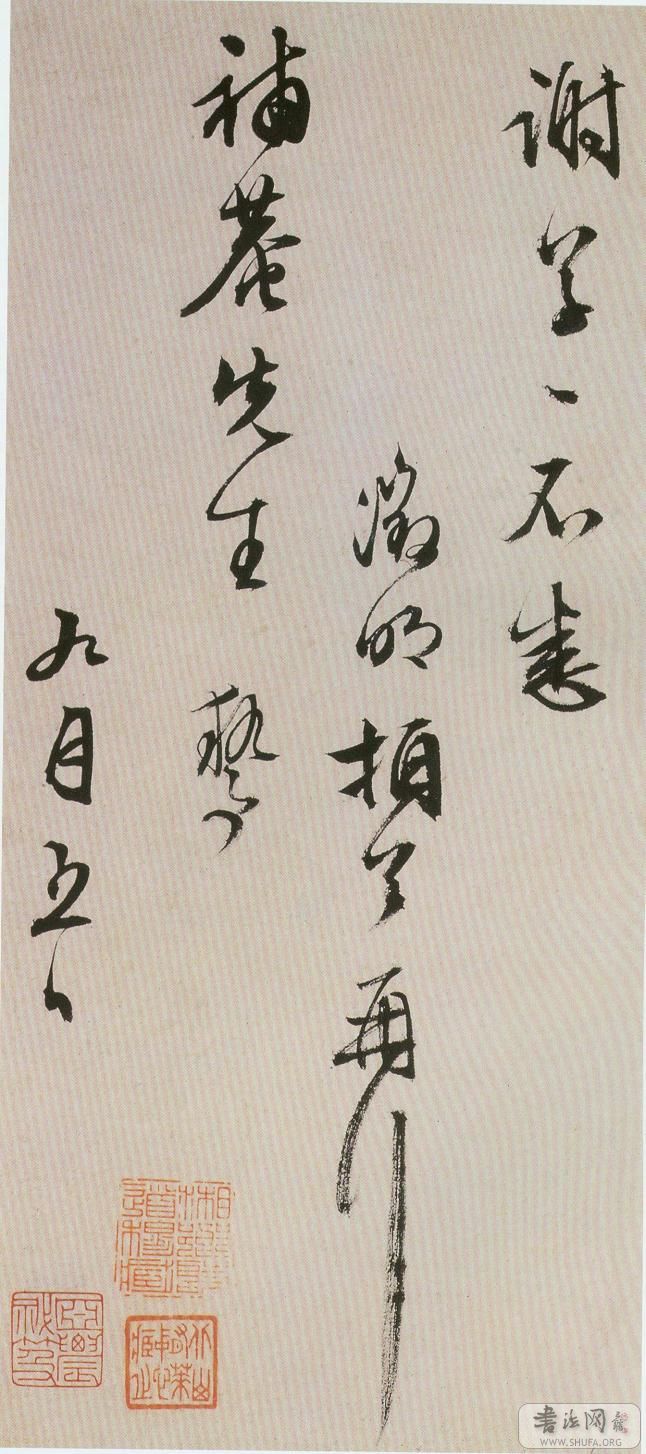 謝草草不悉
徵明頓首再拜
補菴先生 執事
九月五日
書法网
WWW.SHUFA.ORG